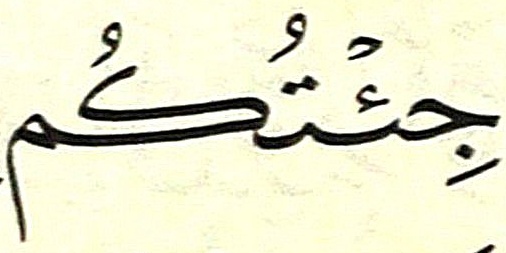 جِئْتُكُم